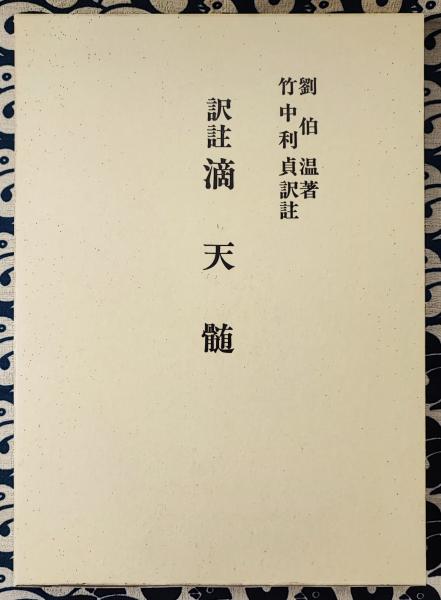 劉伯温著
竹中利貞訳註
訳註 滴天髄